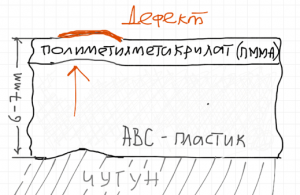 Дефект
ПОЛИМЕТИЛМЕТИКРИЛАТ (ПММА)
6-7 мм
АВС - пластик
ЧУГУН